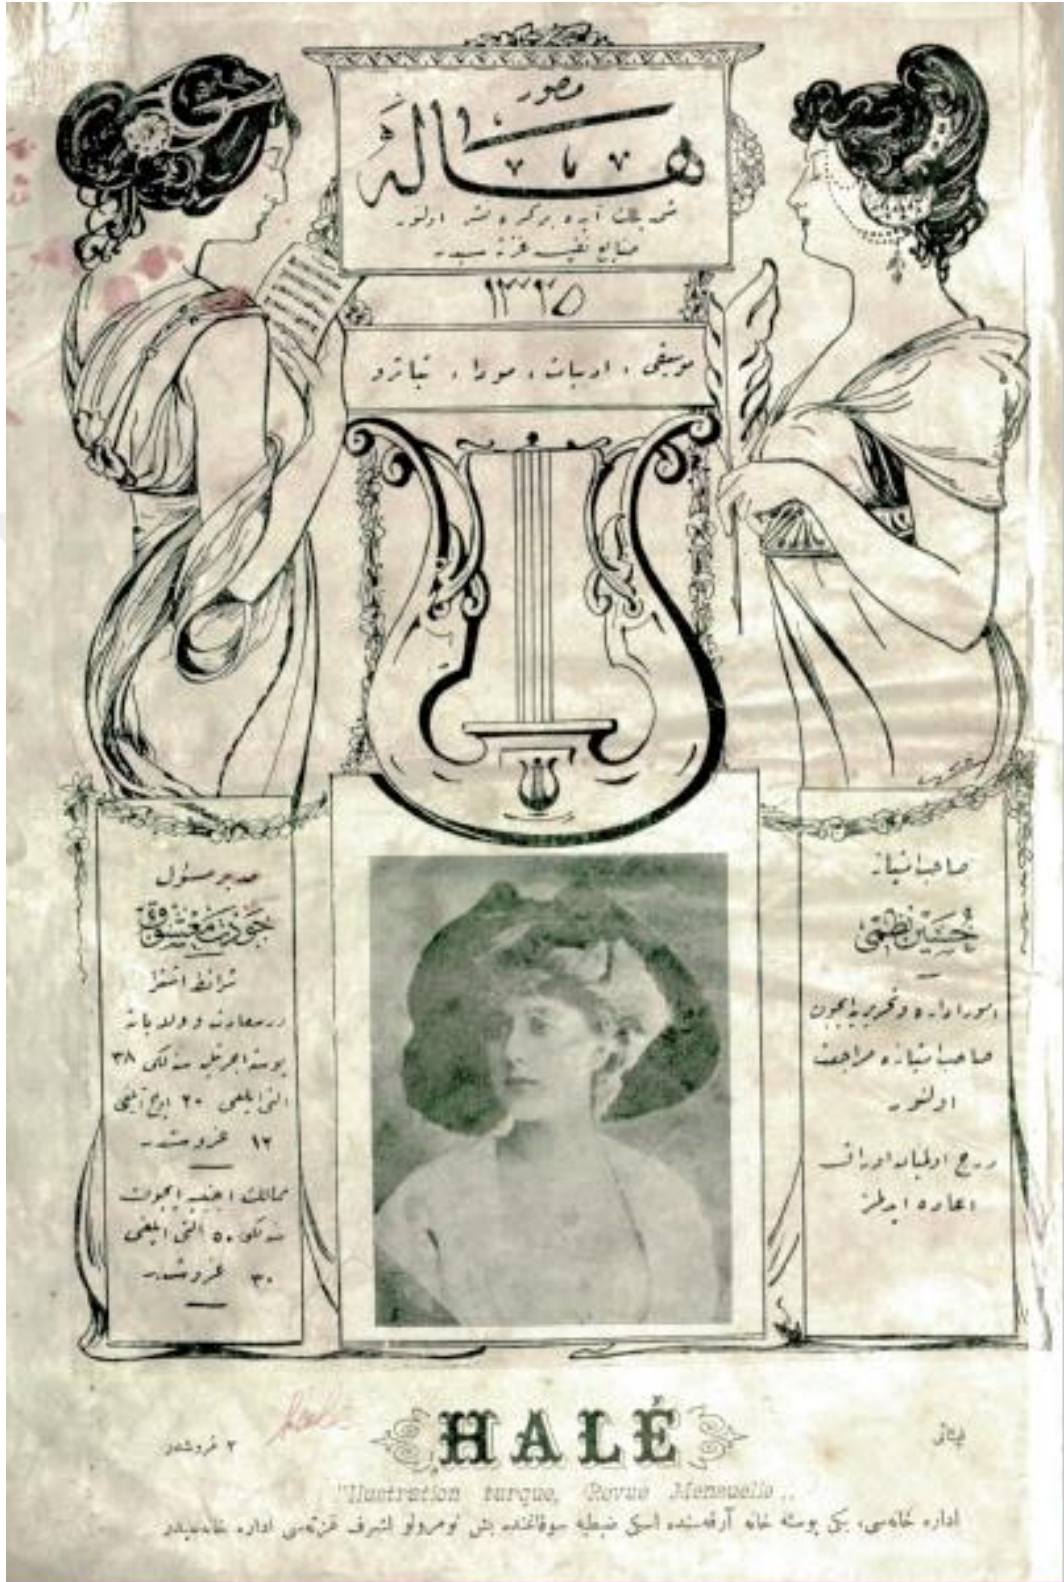 مصور
هاله
شمدیلك آیده بر كره نشر اولنور
صنایع نفیسه غزته سیدر
١٣٢٥
موسیقی ، ادبیات ، مودا ، تیاترو
صاحب امتیاز
حسین نظمی
امور اداره و تحریریه ایچون
صاحب امتیازه مراجعت
اولنور
درج اولنمیان اوراق
اعاده ایدلمز
مدیر مسئول
جودت معشوق
شرائط اشترا
درسعادت و ولایاته
پوسته اجرتیله سنه لكی ٣٨
التی ایلغی ٢٠ اوچ آیلغی
١٢ غروشدر
ممالك اجنبیه ایچون
سنه لكی ٥٠ التی ایلغی
٣٠ غروشدر
Halé
HALÉ
فیئاتی
٢ غروشدر
"Illustration turque, Revue Mensuelle„
اداره خانه‌سی، یكی پوسته خانه آرقه‌سنده اسكی ضبطیه سوقاغنده بش نومرولو اشرف غزته‌سی اداره خانه‌سیدر